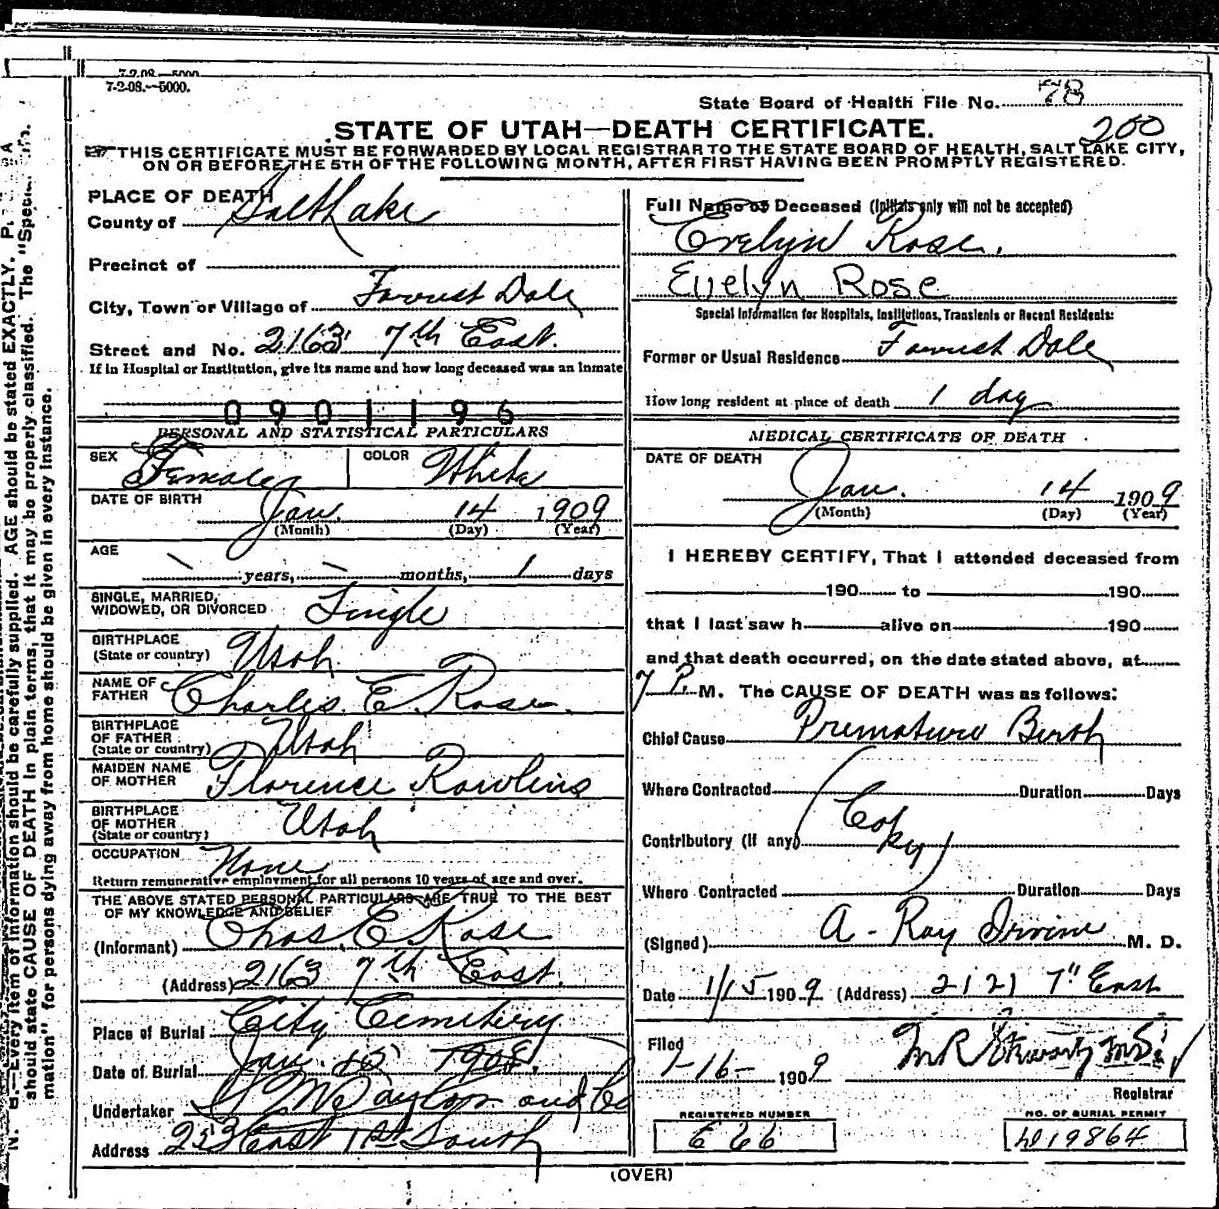 7-2-08.—5000.
7-2-08.—5000.
State Board of Health File No. 78
200
STATE OF UTAH—DEATH CERTIFICATE.
THIS CERTIFICATE MUST BE FORWARDED BY LOCAL REGISTRAR TO THE STATE BOARD OF HEALTH, SALT LAKE CITY,
ON OR BEFORE THE 5TH OF THE FOLLOWING MONTH, AFTER FIRST HAVING BEEN PROMPTLY REGISTERED.
PLACE OF DEATH
County of Salt Lake
Precinct of
City, Town or Village of Forrest Dale
Street and No. 2163 7th East.
If in Hospital or Institution, give its name and how long deceased was an inmate
0901196
PERSONAL AND STATISTICAL PARTICULARS
SEX Female COLOR White
DATE OF BIRTH Jan. 14 1909
(Month) (Day) (Year)
AGE
years, months, 1 days
SINGLE, MARRIED,
WIDOWED, OR DIVORCED Single
BIRTHPLACE
(State or country) Utah
NAME OF
FATHER Charles E. Rose.
BIRTHPLACE
OF FATHER
(State or country) Utah
MAIDEN NAME
OF MOTHER Florence Rawlins
BIRTHPLACE
OF MOTHER
(State or country) Utah
OCCUPATION None
Return remunerative employment for all persons 10 years of age and over.
THE ABOVE STATED PERSONAL PARTICULARS ARE TRUE TO THE BEST
OF MY KNOWLEDGE AND BELIEF
(Informant) Chas. E. Rose
(Address) 2163 7th East.
Place of Burial City Cemetery
Date of Burial Jan. 15 1908.
Undertaker S. M. Taylor and Co
Address 253 East 1st South
Full Name of Deceased (Initials only will not be accepted)
Evelyn Rose.
Evelyn Rose
Special Information for Hospitals, Institutions, Transients or Recent Residents:
Former or Usual Residence Forrest Dale
How long resident at place of death 1 day
MEDICAL CERTIFICATE OF DEATH
DATE OF DEATH
Jan. 14 1909
(Month) (Day) (Year)
I HEREBY CERTIFY, That I attended deceased from
190 to 190
that I last saw h alive on 190
and that death occurred, on the date stated above, at
7 P. M. The CAUSE OF DEATH was as follows:
Chief Cause Premature Birth
Where Contracted Duration Days
(Copy)
Contributory (if any)
Where Contracted Duration Days
(Signed) A. Ray Irvine M. D.
Date 1/15 1909 (Address) 2121 7" East
Filed
1-16- 1909
Registrar
REGISTERED NUMBER
E 66
NO. OF BURIAL PERMIT
19864
(OVER)
N. B.—Every item of information should be carefully supplied. AGE should be stated EXACTLY. P
should state CAUSE OF DEATH in plain terms, that it may be properly classified. The "Special
mation" for persons dying away from home should be given in every instance.